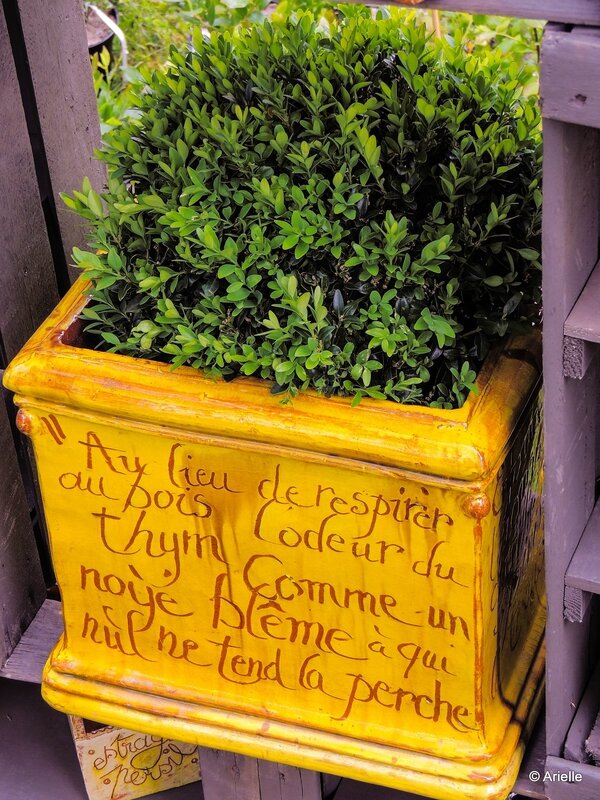 " Au lieu de respirer
au bois l'odeur du
thym Comme un
noyé blême à qui
nul ne tend la perche
estragon
persil
© Arielle